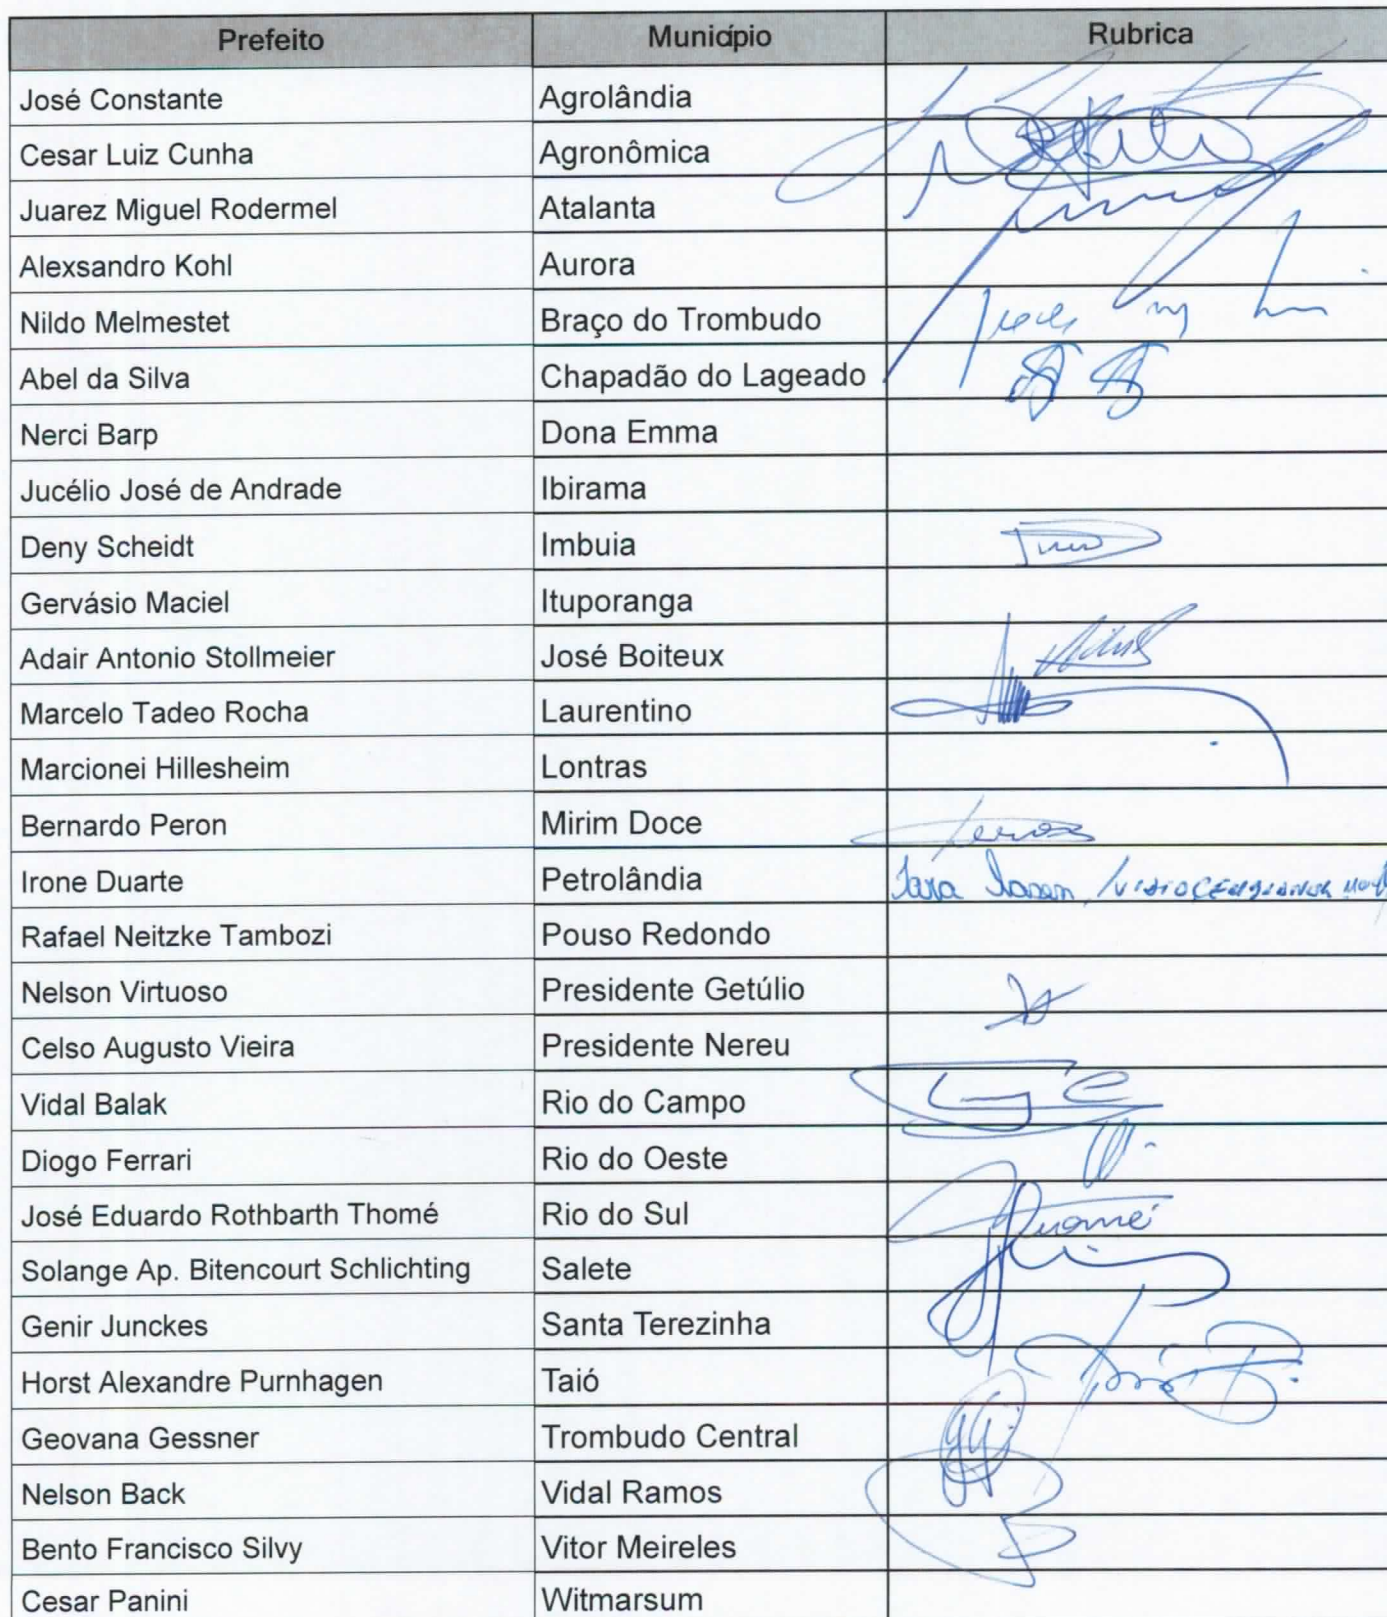 Prefeito Município Rubrica
José Constante Agrolândia
Cesar Luiz Cunha Agronômica
Juarez Miguel Rodermel Atalanta
Alexsandro Kohl Aurora
Nildo Melmestet Braço do Trombudo
Abel da Silva Chapadão do Lageado
Nerci Barp Dona Emma
Jucélio José de Andrade Ibirama
Deny Scheidt Imbuia
Gervásio Maciel Ituporanga
Adair Antonio Stollmeier José Boiteux
Marcelo Tadeo Rocha Laurentino
Marcionei Hillesheim Lontras
Bernardo Peron Mirim Doce
Irone Duarte Petrolândia
Rafael Neitzke Tambozi Pouso Redondo
Nelson Virtuoso Presidente Getúlio
Celso Augusto Vieira Presidente Nereu
Vidal Balak Rio do Campo
Diogo Ferrari Rio do Oeste
José Eduardo Rothbarth Thomé Rio do Sul
Solange Ap. Bitencourt Schlichting Salete
Genir Junckes Santa Terezinha
Horst Alexandre Purnhagen Taió
Geovana Gessner Trombudo Central
Nelson Back Vidal Ramos
Bento Francisco Silvy Vitor Meireles
Cesar Panini Witmarsum